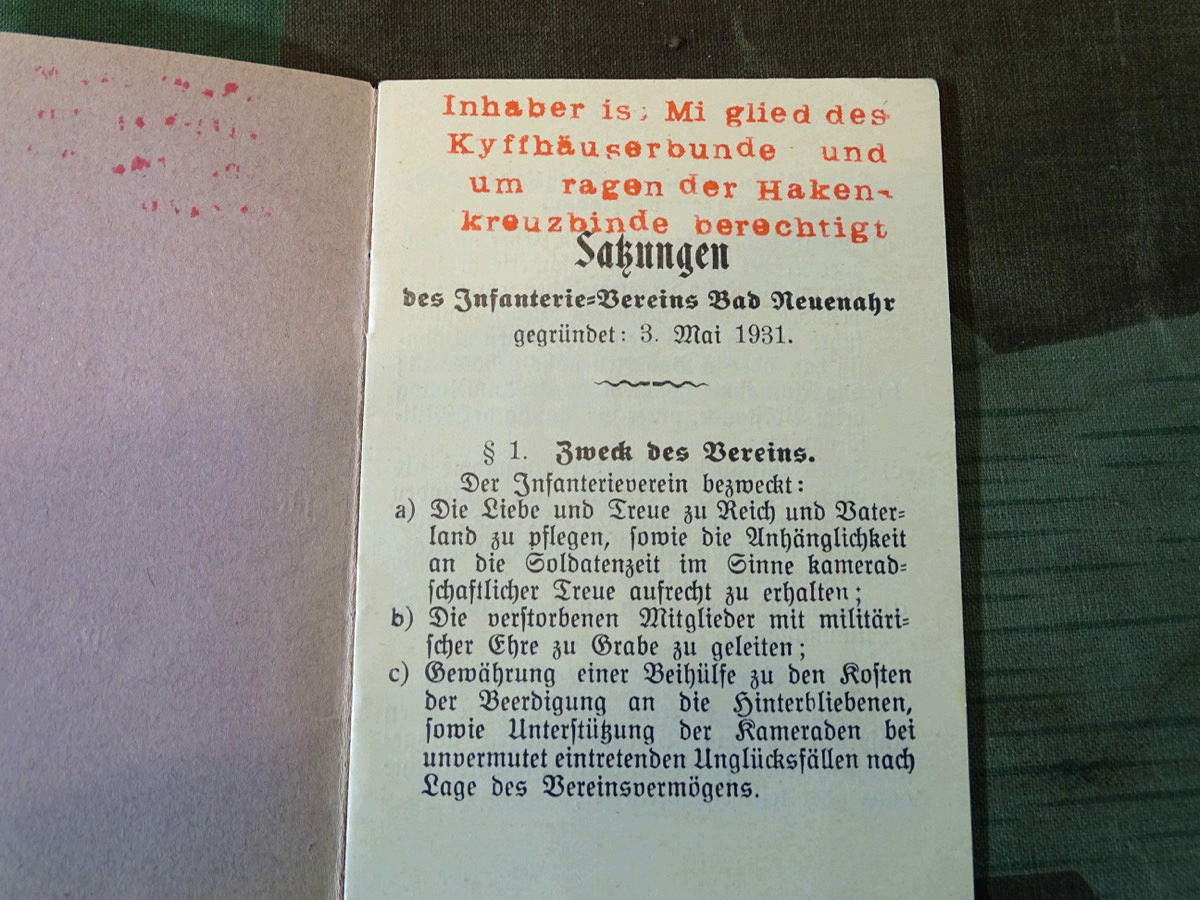 Inhaber is; Mi glied des
Kyffhäuserbunde und
um ragen der Haken-
kreuzbinde berechtigt
Satzungen
des Infanterie-Vereins Bad Neuenahr
gegründet: 3. Mai 1931.
§ 1. Zweck des Vereins.
Der Infanterieverein bezweckt:
a) Die Liebe und Treue zu Reich und Vater-
land zu pflegen, sowie die Anhänglichkeit
an die Soldatenzeit im Sinne kamerad-
schaftlicher Treue aufrecht zu erhalten;
b) Die verstorbenen Mitglieder mit militäri-
scher Ehre zu Grabe zu geleiten;
c) Gewährung einer Beihülfe zu den Kosten
der Beerdigung an die Hinterbliebenen,
sowie Unterstützung der Kameraden bei
unvermutet eintretenden Unglücksfällen nach
Lage des Vereinsvermögens.